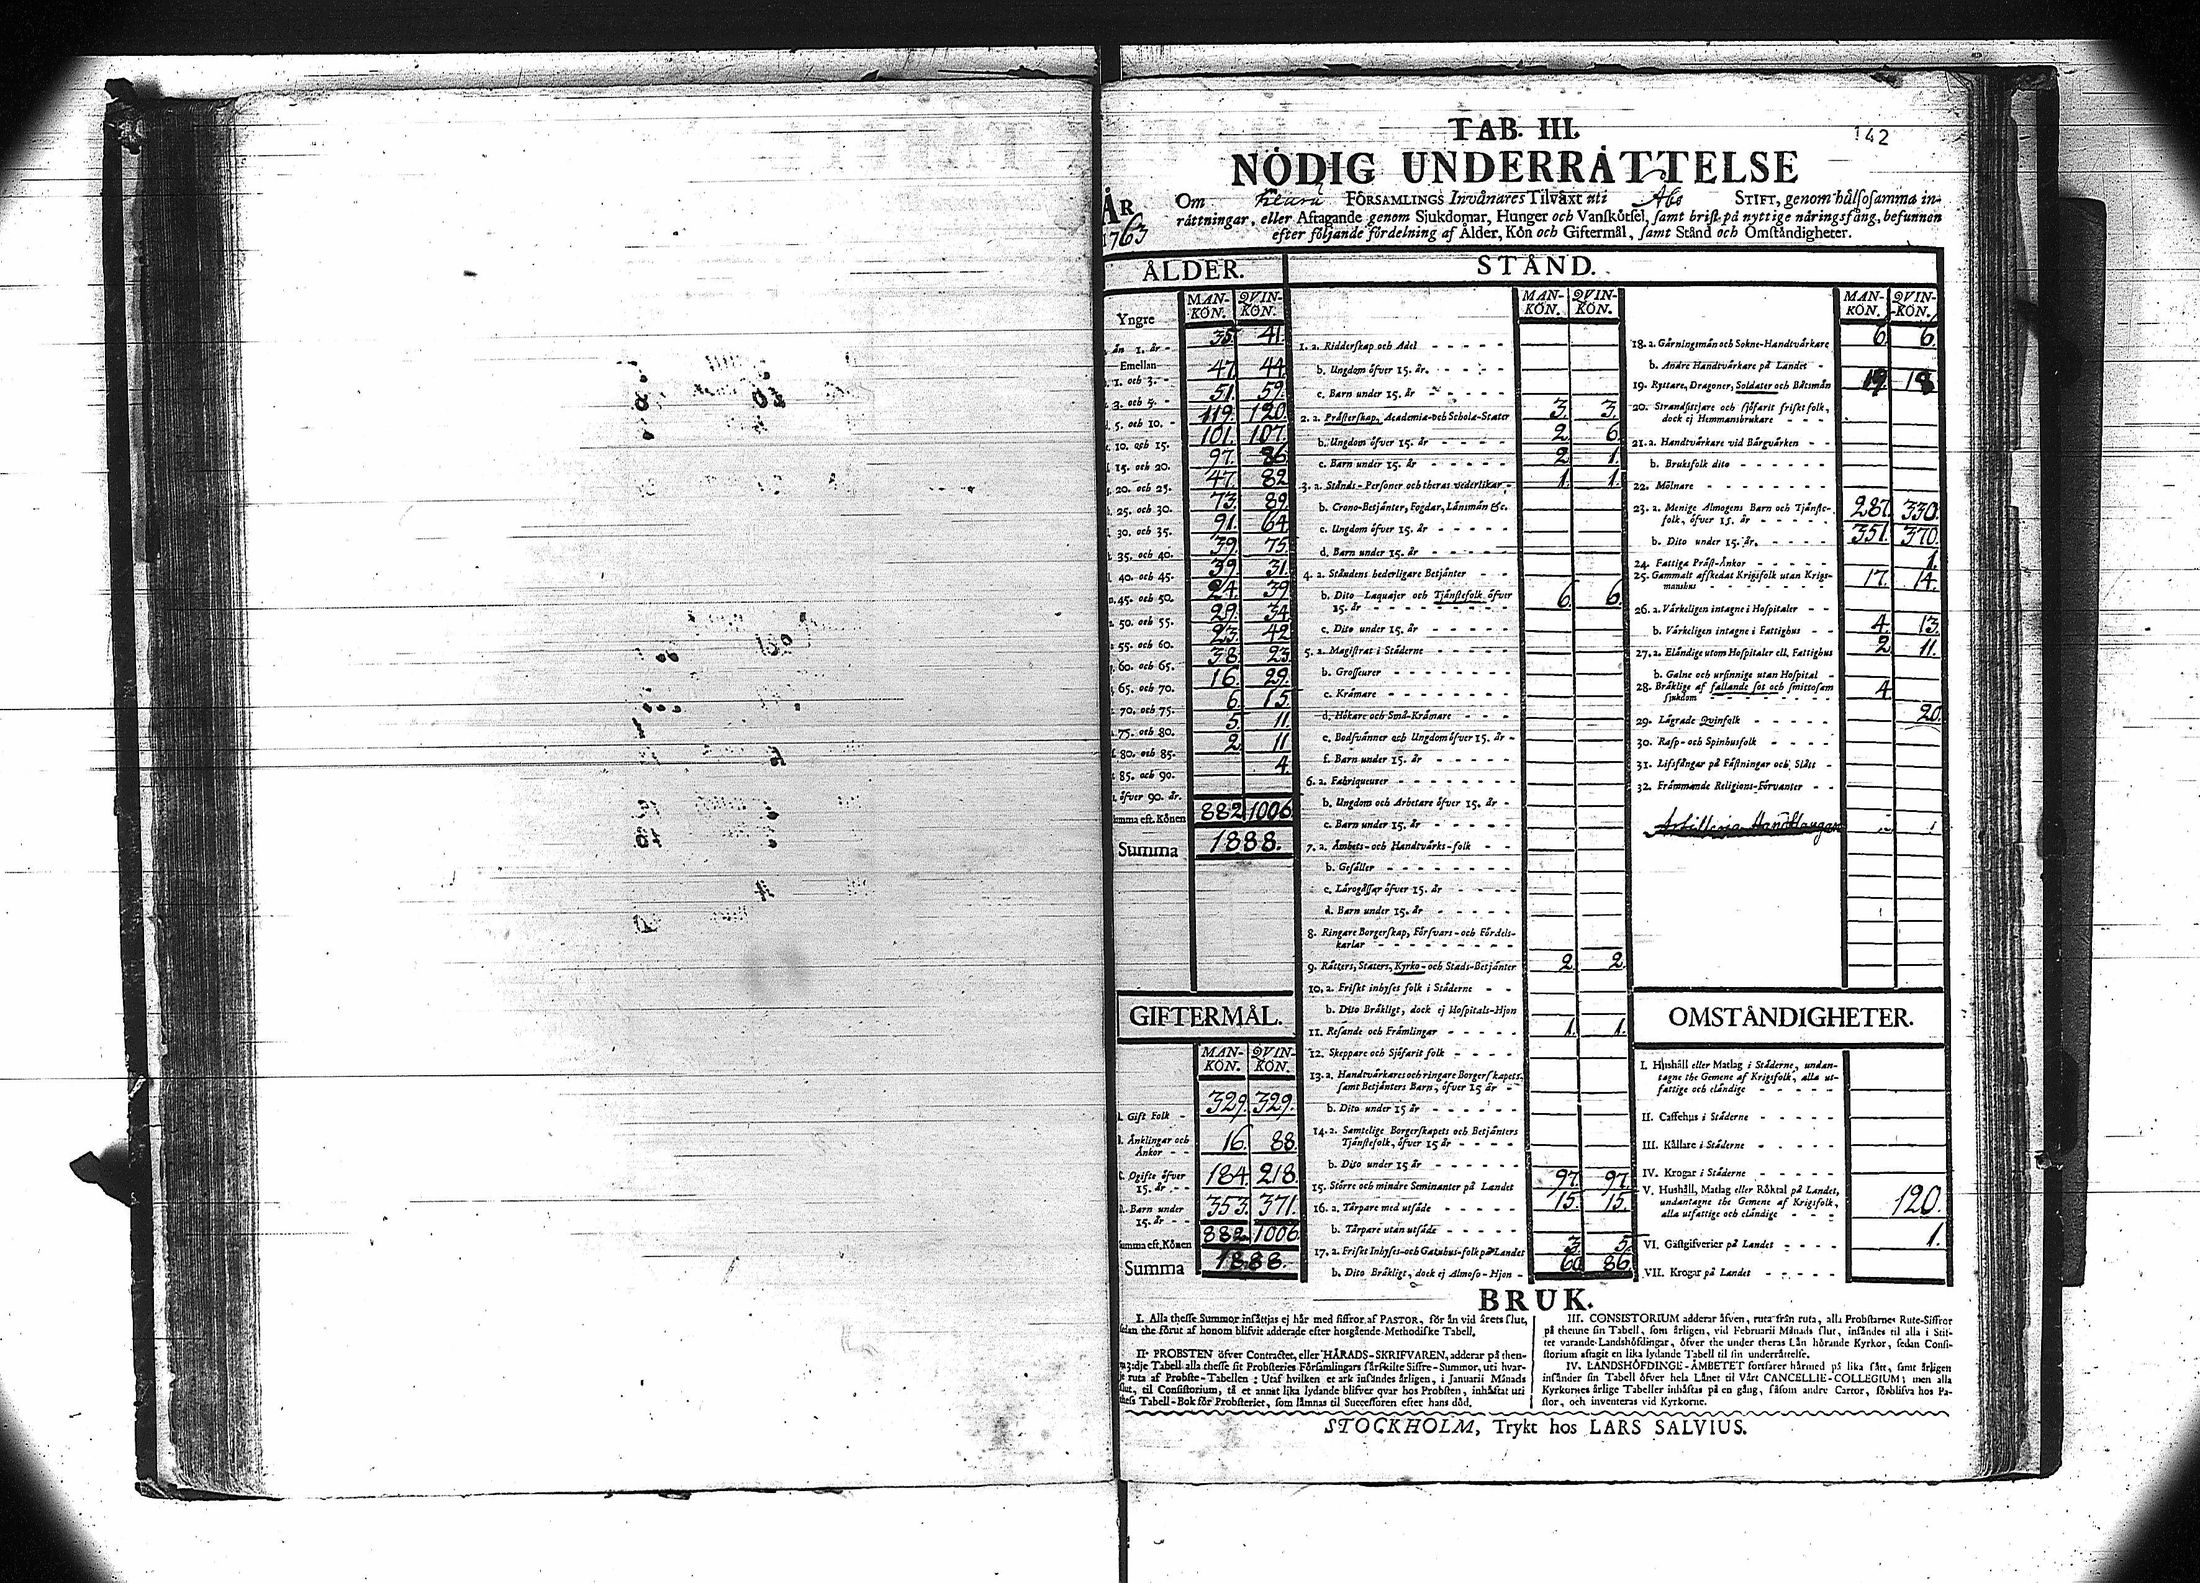 TAB. III.
142
NÖDIG UNDERRÄTTELSE
ÅR 1763
Om FÖRSAMLINGS Invånares Tilväxt uti Åbo STIFT, genom hälsosamma in-
rättningar, eller Aftagande genom Sjukdomar, Hunger och Vanskötsel, samt brist på nyttige näringsfång, befunnen
efter följande fördelning af Ålder, Kön och Giftermål, samt Stånd och Omständigheter.
ÅLDER.
MAN-KÖN. QVIN-KÖN.
Yngre
än 1. år - 35. 41.
Emellan
1. och 3. - 47. 44.
3. och 5. - 51. 59.
5. och 10. - 119. 120.
10. och 15. 101. 107.
15. och 20. 97. 86.
20. och 25. 47. 82.
25. och 30. 73. 89.
30. och 35. 91. 64.
35. och 40. 39. 75.
40. och 45. 39. 31.
45. och 50. 24. 39.
50. och 55. 29. 34.
55. och 60. 23. 42.
60. och 65. 38. 23.
65. och 70. 16. 29.
70. och 75. 6. 15.
75. och 80. 5. 11.
80. och 85. 2. 11.
85. och 90. 4.
öfver 90. år.
Summa eft. Könen 882. 1006.
Summa 1888.
GIFTERMÅL.
MAN-KÖN. QVIN-KÖN.
Gift Folk - 329. 329.
Änklingar och Änkor - - 16. 88.
Ogifte öfver 15. år - - 184. 218.
Barn under 15. år - - 353. 371.
Summa eft. Könen 882. 1006.
Summa 1888.
STÅND.
MAN-KÖN. QVIN-KÖN.
1. a. Ridderskap och Adel
b. Ungdom öfver 15. år.
c. Barn under 15. år
2. a. Prästerskap, Academiæ-och Scholæ-Stater 3. 3.
b. Ungdom öfver 15. år 2. 6.
c. Barn under 15. år 2. 1.
3. a. Stånds-Personer och theras vederlikar 1. 1.
b. Crono-Betjänter, Fogdar, Länsmän &c.
c. Ungdom öfver 15. år
d. Barn under 15. år
4. a. Ståndens hederligare Betjänter
b. Dito Laquajer och Tjänstefolk öfver 15. år 6. 6.
c. Dito under 15. år
5. a. Magistrat i Städerne
b. Grosseurer
c. Krämare
d. Hökare och Små-Krämare
e. Bodsvänner och Ungdom öfver 15. år
f. Barn under 15. år
6. a. Fabriqueurer
b. Ungdom och Arbetare öfver 15. år
c. Barn under 15. år
7. a. Ämbets-och Handtvärks-folk
b. Gesäller
c. Lärogåssar öfver 15. år
d. Barn under 15. år
8. Ringare Borgerskap, Försvars-och Fördels-karlar
9. Rätters, Staters, Kyrko-och Stads-Betjänter 2. 2.
10. a. Friskt inhyses folk i Städerne
b. Dito Bräkligt, dock ej Hospitals-Hjon
11. Resande och Främlingar 1. 1.
12. Skeppare och Sjöfarit folk
13. a. Handtvärkares och ringare Borgerskapets samt Betjänters Barn, öfver 15 år
b. Dito under 15 år
14. a. Samtelige Borgerskapets och Betjänters Tjänstefolk, öfver 15 år
b. Dito under 15 år
15. Större och mindre Hemmanter på Landet 97. 97.
16. a. Tårpare med utsäde 15. 15.
b. Tårpare utan utsäde
17. a. Friskt Inhyses-och Gatuhus-folk på Landet 3. 5.
b. Dito Bräkligt, dock ej Almoso-Hjon - 60. 86.
MAN-KÖN. QVIN-KÖN.
18. a. Gärningsmän och Sokne-Handtvärkare 6. 6.
b. Andre Handtvärkare på Landet
19. Ryttare, Dragoner, Soldater och Båtsmän 19. 18.
20. Strandsittjare och sjöfarit friskt folk, dock ej Hemmansbrukare
21. a. Handtvärkare vid Bärgvärken
b. Bruksfolk dito
22. Mölnare
23. a. Menige Almogens Barn och Tjänste-folk, öfver 15. år 287. 330.
b. Dito under 15. år. 351. 370.
24. Fattiga Präst-Änkor 1.
25. Gammalt afskedat Krigsfolk utan Krigs-manshus 17. 14.
26. a. Värkeligen intagne i Hospitaler
b. Värkeligen intagne i Fattighus 4. 13.
27. a. Eländige utom Hospitaler ell. Fattighus 2. 11.
b. Galne och ursinnige utan Hospital
28. Bräklige af fallande sot och smittosam sjukdom 4.
29. Lägrade Qvinfolk 20.
30. Rasp-och Spinhusfolk
31. Lifsfångar på Fästningar och Slått
32. Främmande Religions-Förvanter
Artilleria Handtlangare
OMSTÄNDIGHETER.
I. Hushåll eller Matlag i Städerne, undan-
tagne the Gemene af Krigsfolk, alla ut-
fattige och eländige
II. Caffehus i Städerne
III. Källare i Städerne
IV. Krogar i Städerne
V. Hushåll, Matlag eller Röktal på Landet,
undantagne the Gemene af Krigsfolk,
alla utfattige och eländige 120.
VI. Gästgifverier på Landet 1.
VII. Krogar på Landet
BRUK.
I. Alla thesse Summor insättjas ej här med siffror af PASTOR, för än vid årets slut,
sedan the förut af honom blifvit adderade efter hosgående Methodiske Tabell.
II. PROBSTEN öfver Contractet, eller HÄRADS-SKRIFVAREN, adderar på then-
na 3:dje Tabell alla thesse sit Probsteries Församlingars särskilte Siffre-Summor, uti hvar-
je ruta af Probste-Tabellen: Utaf hvilken et ark insändes årligen, i Januarii Månads
slut, til Consistorium, tå et annat lika lydande blifver qvar hos Probsten, inhäftat uti
thess Tabell-Bok för Probsteriet, som lämnas til Successoren efter hans död.
III. CONSISTORIUM adderar äfven, ruta från ruta, alla Probstarnes Rute-Siffror
på thenne sin Tabell, som årligen, vid Februarii Månads slut, insändes til alla i Stif-
tet varande Landshöfdingar, öfver the under theras Län hörande Kyrkor, sedan Consi-
storium aftagit en lika lydande Tabell til sin underrättelse.
IV. LANDSHÖFDINGE-ÄMBETET fortfarer härmed på lika sätt, samt årligen
insänder sin Tabell öfver hela Länet til Vårt CANCELLIE-COLLEGIUM; men alla
Kyrkornes årlige Tabeller inhäftas på en gång, såsom andre Cartor, förblifva hos Pa-
stor, och inventeras vid Kyrkorne.
STOCKHOLM, Trykt hos LARS SALVIUS.